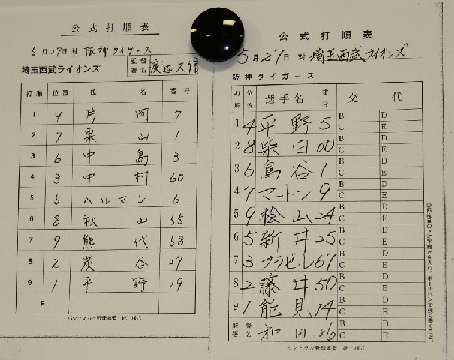 公式打順表
5月29日対阪神タイガース
埼玉西武ライオンズ
監督署名 渡辺久信
打順 位置 氏名 番号
1 4 片岡 7
2 7 栗山 1
3 6 中島 3
4 3 中村 60
5 5 ヘルマン 6
6 8 秋山 55
7 9 熊代 58
8 2 炭谷 27
9 1 平野 19
公式打順表
5月29日対埼玉西武ライオンズ
阪神タイガース
打順 位置 選手名 番号 交代
1 4 平野 5 B D C E
2 8 柴田 00 B D C E
3 6 鳥谷 1 B D C E
4 7 マートン 9 B D C E
5 9 桧山 24 B D C E
6 5 新井 25 B D C E
7 3 ブラゼル 67 B D C E
8 2 藤井 50 B D C E
9 1 能見 14 B D C E
監督署名 和田 86